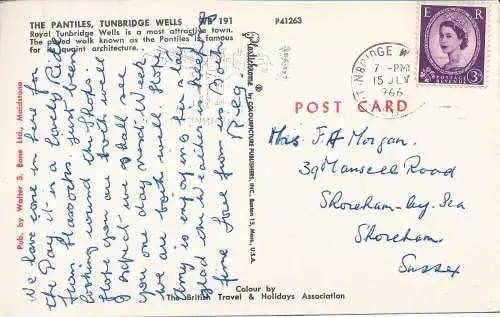 THE PANTILES, TUNBRIDGE WELLS WB 191
Royal Tunbridge Wells is a most attractive town.
The paved walk known as the Pantiles is famous
for its quaint architecture.
P41263
We have come in here for
the Day. it is a lovely Ride
from Hassocks. Just been
looking round the Shops.
Hope you are both well
I expect we shall see
you one day next Week.
We are both well. Hope
Amy is enjoying her a day
glad the weather is keeping
fine Love from us Both
Reg
Pub. by Walter S. Bane Ltd., Maidstone
Plastichrome ® by COLOURPICTURE PUBLISHERS, INC., Boston 15, Mass., U.S.A.
Colour by
The British Travel & Holidays Association
POST CARD
E R
POSTAGE REVENUE
3D
TUNBRIDGE W
7 - PM
15 JLY
1966
Mrs. F. A Morgan.
39 Mansell Road
Shoreham-by-Sea
Shoreham
Sussex